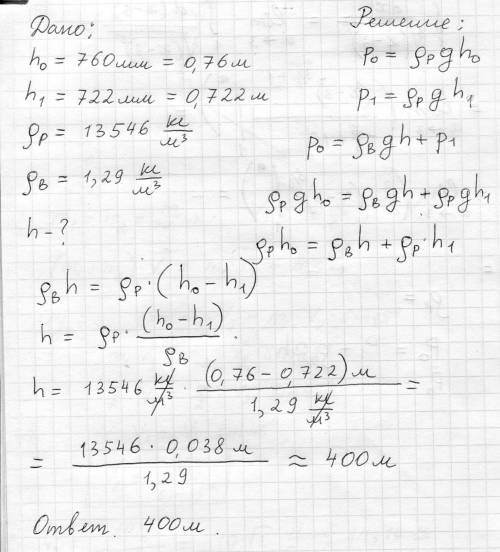 Дано:
h₀ = 760мм = 0,76м
h₁ = 722мм = 0,722м
ρ_P = 13546 кг/м³
ρ_B = 1,29 кг/м³
h - ?
Решение:
p₀ = ρ_P g h₀
p₁ = ρ_P g h₁
p₀ = ρ_B g h + p₁
ρ_P g h₀ = ρ_B g h + ρ_P g h₁
ρ_P h₀ = ρ_B h + ρ_P · h₁
ρ_B h = ρ_P · (h₀ - h₁)
h = ρ_P · (h₀ - h₁) / ρ_B .
h = 13546 кг/м³ · (0,76 - 0,722) м / 1,29 кг/м³ =
= 13546 · 0,038 м / 1,29 ≈ 400м
Ответ. 400м.